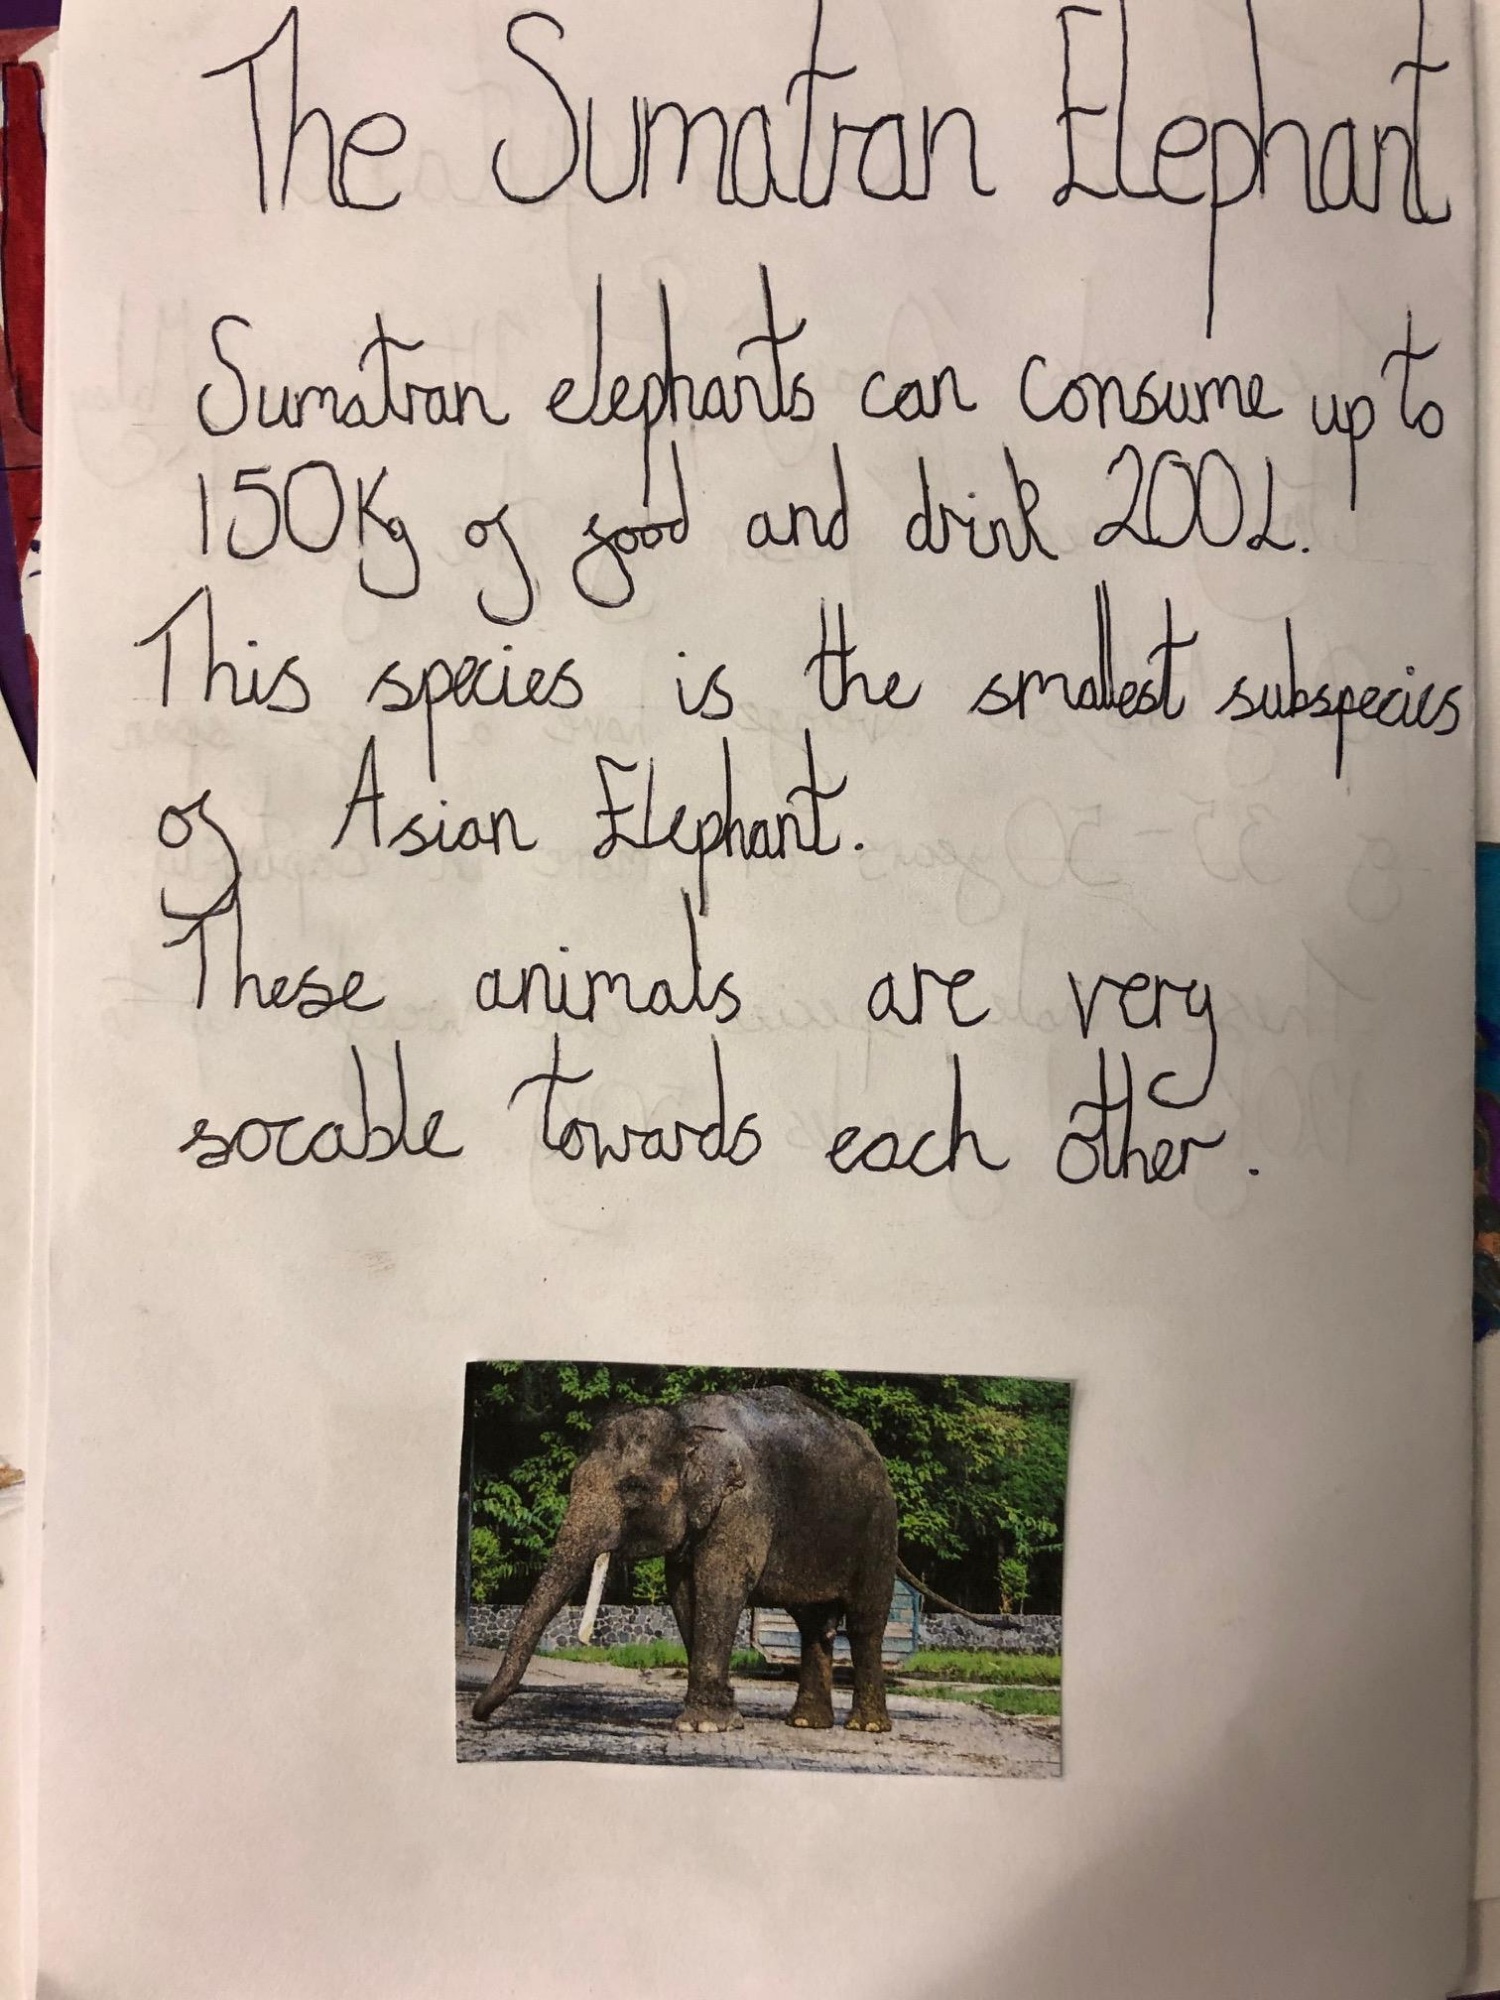 The Sumatran Elephant
Sumatran elephants can consume up to
150Kg of food and drink 200L.
This species is the smallest subspecies
of Asian Elephant.
These animals are very
socable towards each other.